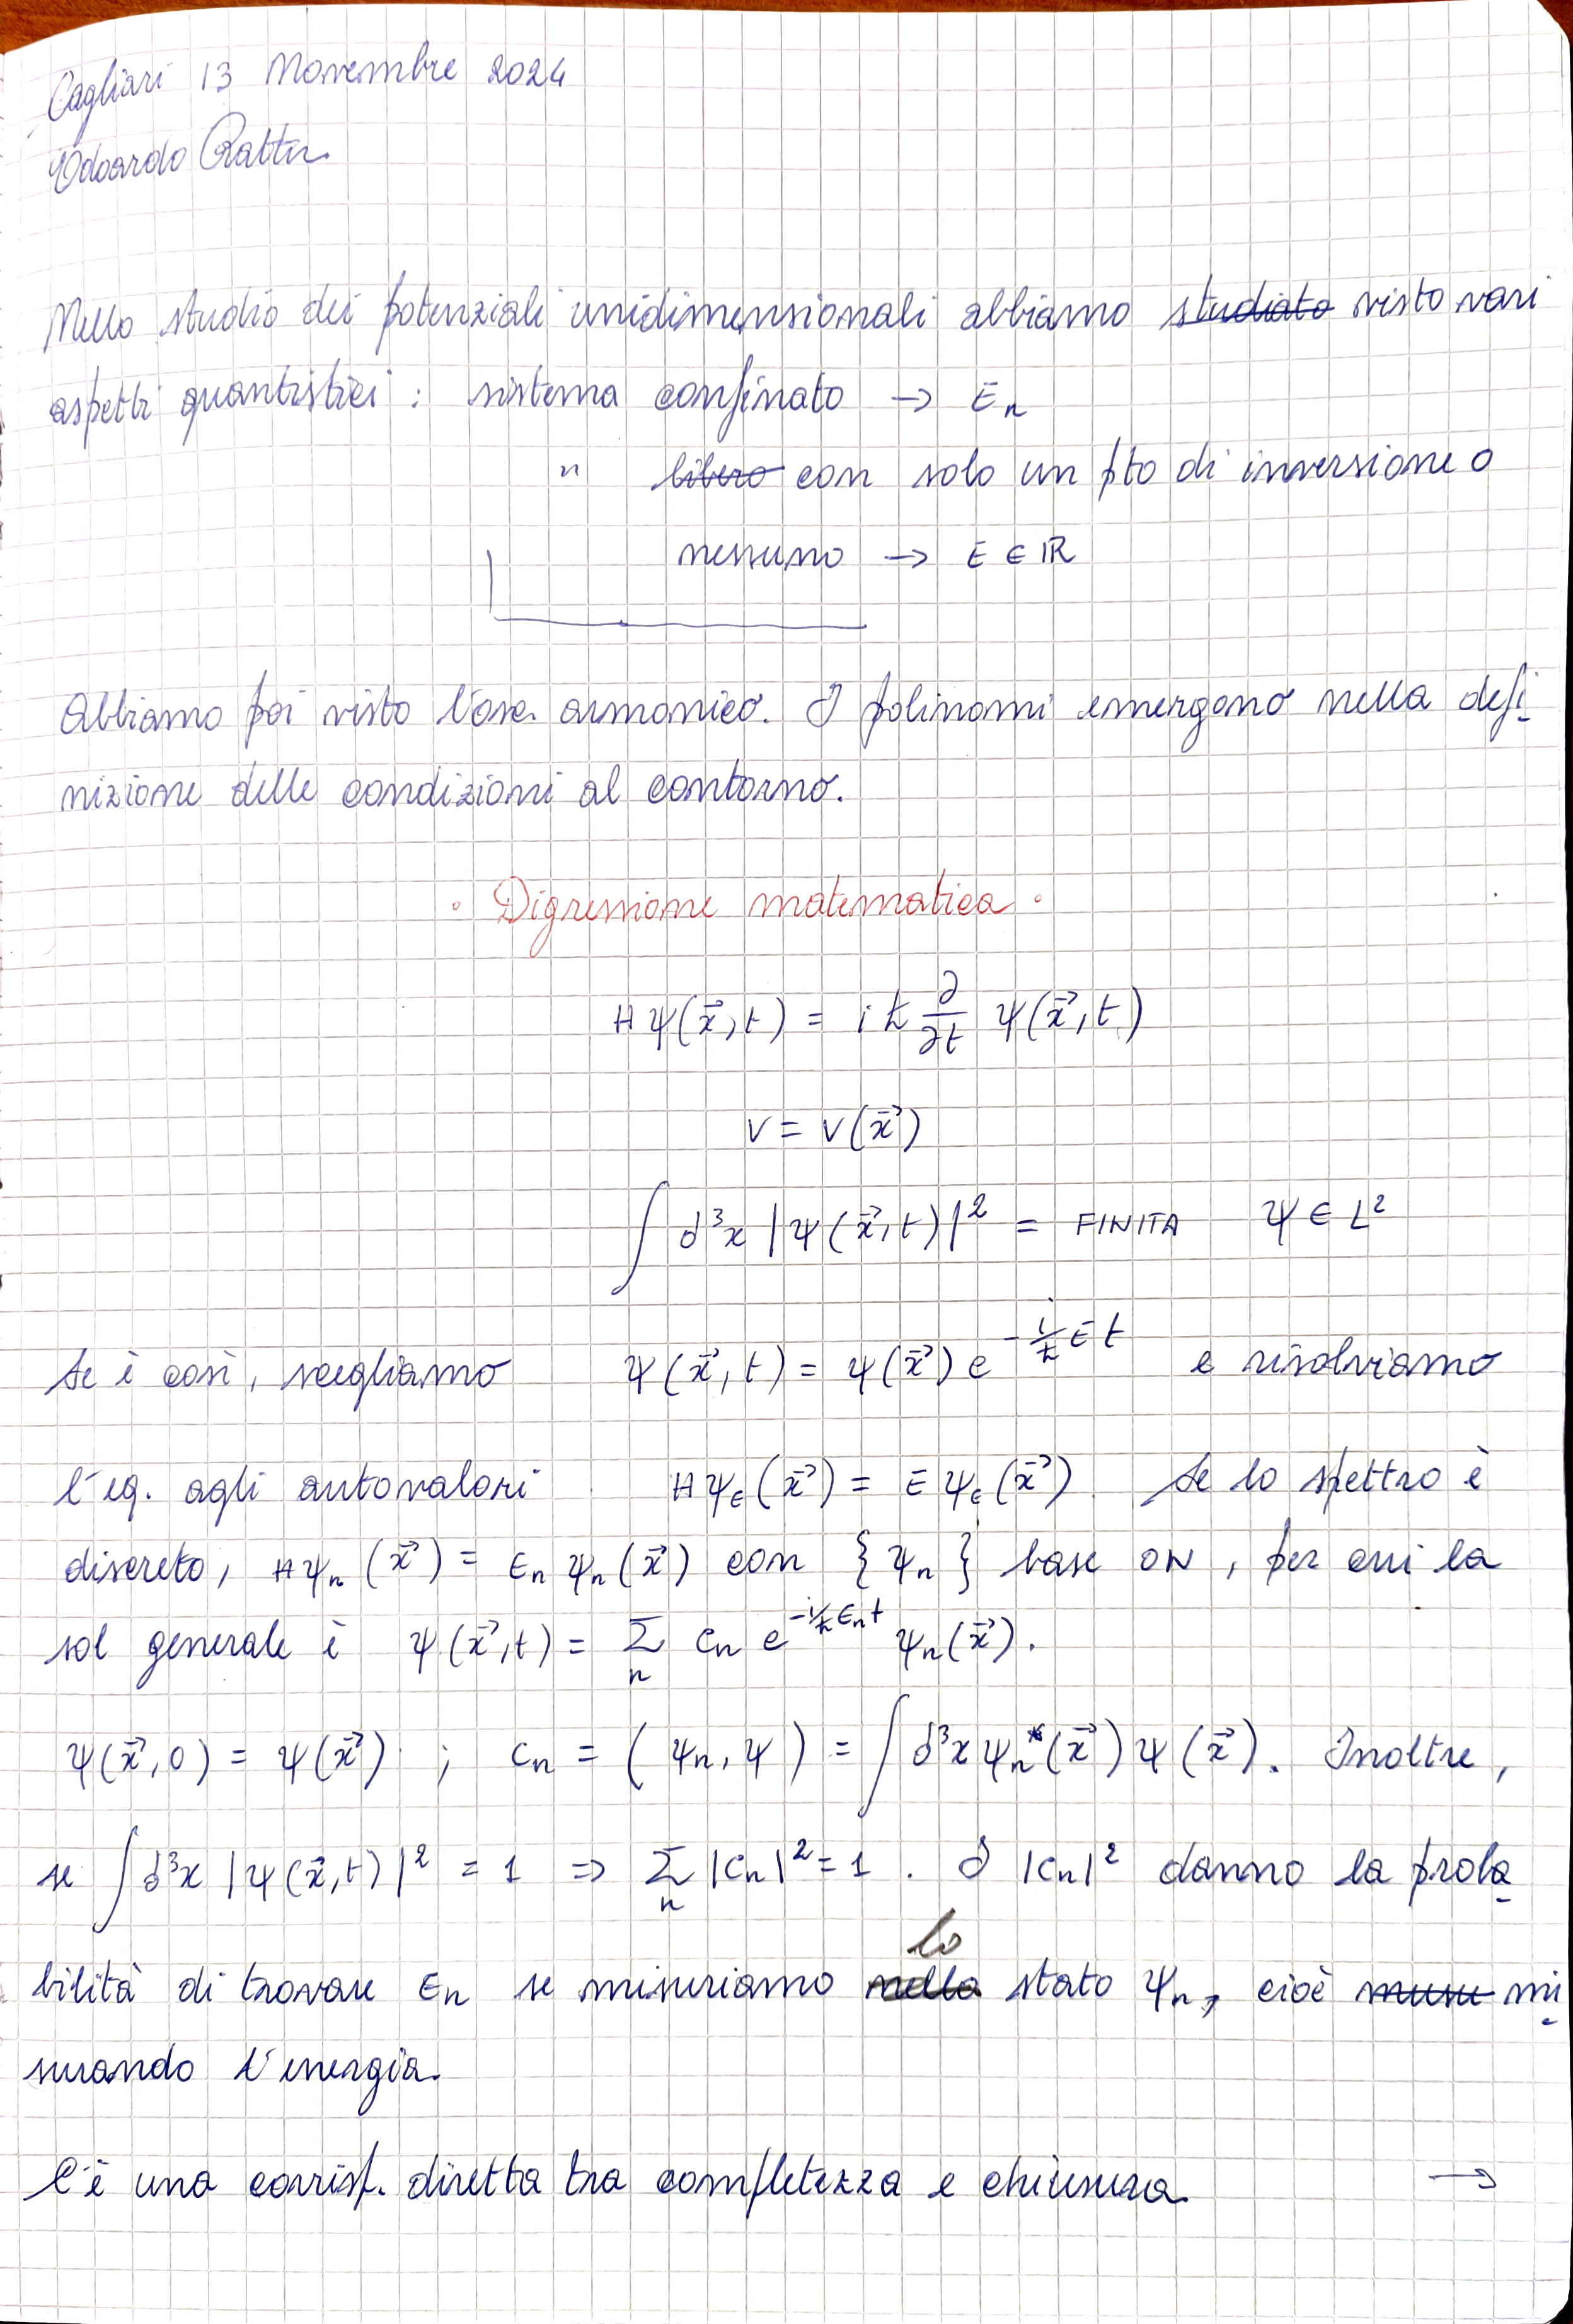 Cagliari 13 Novembre 2024
Edoardo
Nello studio dei potenziali unidimensionali abbiamo studiato visto vari
aspetti quantistici : sistema confinato → En
" libero con solo un pto di inversione o
nessuno → E ∈ ℝ
Abbiamo poi visto l'osc. armonico. I polinomi emergono nella defi
nizione delle condizioni al contorno.
• Digressione matematica •
Hψ(x⃗,t) = iℏ ∂/∂t ψ(x⃗,t)
V = V(x⃗)
∫ d³x |ψ(x⃗,t)|² = FINITA ψ ∈ L²
Se è così, scegliamo ψ(x⃗,t) = ψ(x⃗) e^{-i/ℏ E t} e risolviamo
l'eq. agli autovalori Hψ_E(x⃗) = E ψ_E(x⃗). Se lo spettro è
discreto, Hψn(x⃗) = En ψn(x⃗) con {ψn} base ON, per cui la
sol generale è ψ(x⃗,t) = Σ_n cn e^{-i/ℏ En t} ψn(x⃗).
ψ(x⃗,0) = ψ(x⃗) ; cn = (ψn, ψ) = ∫ d³x ψn*(x⃗) ψ(x⃗). Inoltre,
se ∫ d³x |ψ(x⃗,t)|² = 1 ⇒ Σ_n |cn|² = 1 . I |cn|² danno la proba
lo
bilità di trovare En se misuriamo nello stato ψn, cioè misu mi
surando l'energia.
C'è una corrisp. diretta tra completezza e chiusura. →